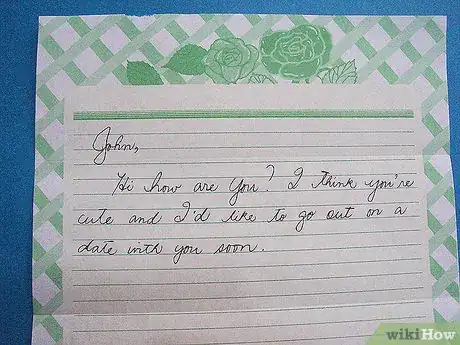 John,
Hi how are you? I think you're
cute and I'd like to go out on a
date with you soon.
wikiHow